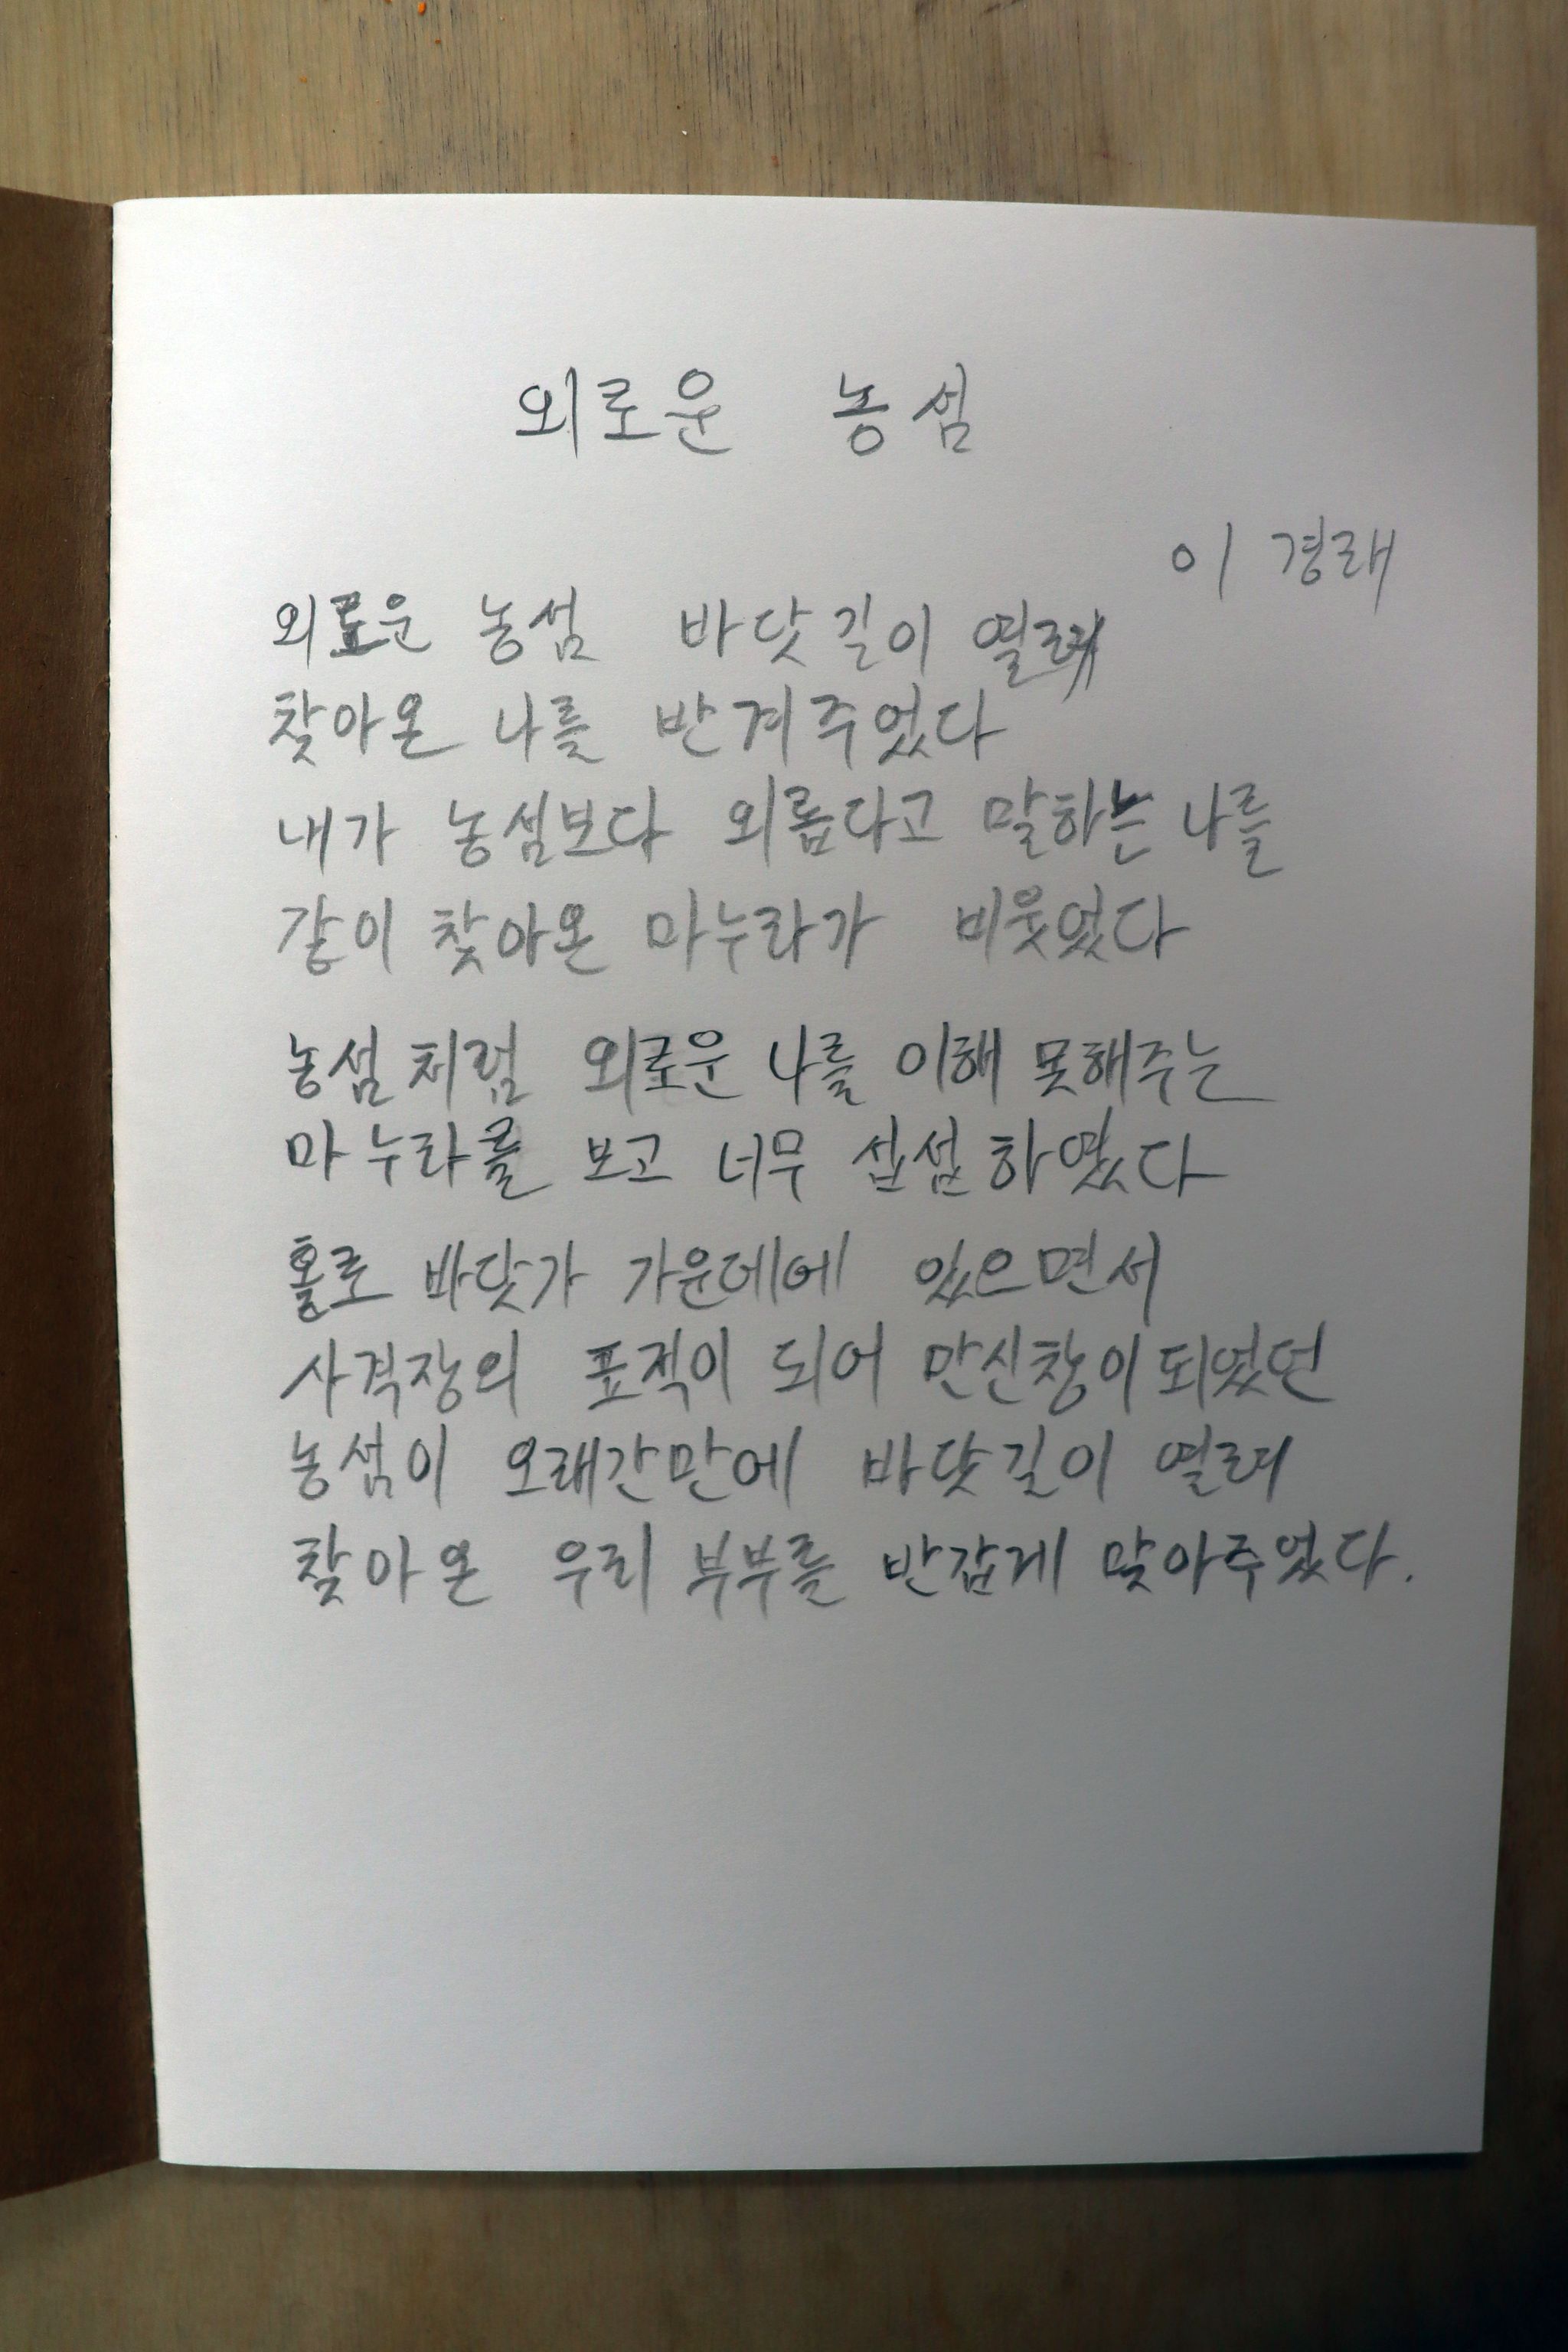 외로운 농섬
이 경래
외로운 농섬 바닷길이 열려
찾아온 나를 반겨주었다
내가 농섬보다 외롭다고 말하는 나를
같이 찾아온 마누라가 비웃었다
농섬처럼 외로운 나를 이해 못해주는
마누라를 보고 너무 섭섭하였다
홀로 바닷가 가운데에 있으면서
사격장의 표적이 되어 만신창이 되었던
농섬이 오래간만에 바닷길이 열려
찾아온 우리 부부를 반갑게 맞아주었다.